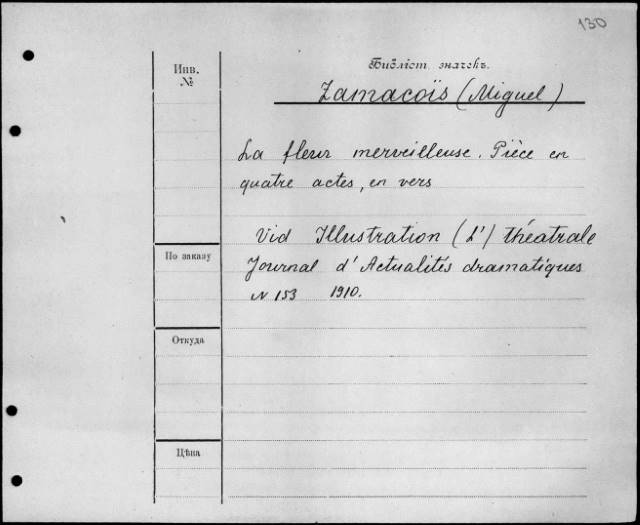 130
Инв.
№
Библіот. значекъ.
Zamacoïs (Miguel)
La fleur merveilleuse. Pièce en
quatre actes, en vers
Vid Illustration (L') théatrale
Journal d'Actualités dramatiques
N 153 1910.
По заказу
Откуда
Цѣна